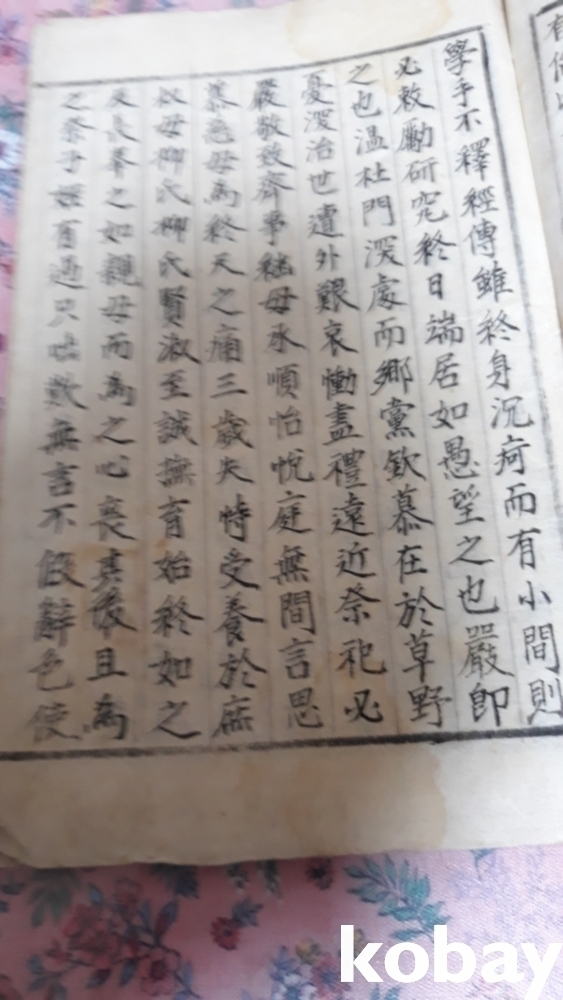 學手不釋經傳雖終身沉痾而有小間則
必敕勵硏究終日端居如愚望之也嚴卽
之也溫杜門深處而鄕黨欽慕在於草野
憂深治世遭外艱哀慟盡禮遠近祭祀必
嚴敬致齊事継母承順怡悅庭無間言思
慕慈母爲終天之痛三歲失恃受養於庶
叔母柳氏柳氏賢淑至誠撫育始終如之
及長養之如親母而爲之心喪其後且爲
之祭子姪有過只叱欺無言不假辭色使
有
kobay